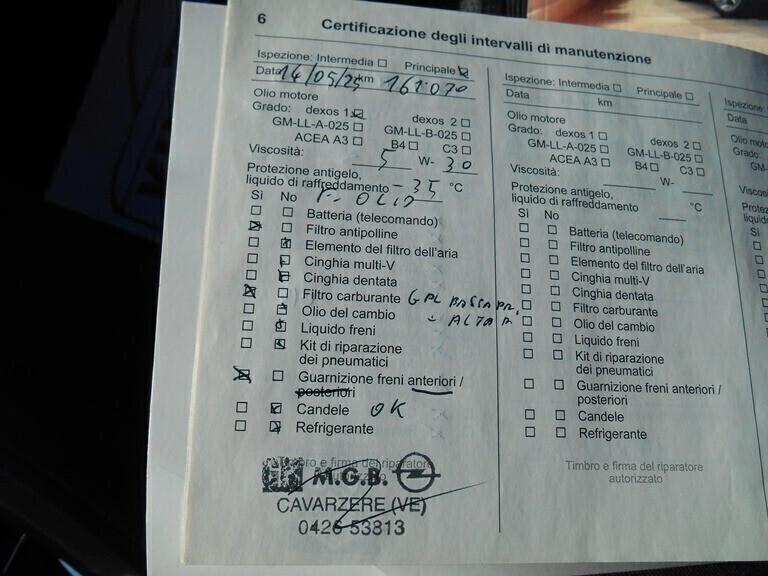 6 Certificazione degli intervalli di manutenzione
Ispezione: Intermedia Principale
Data 14/05/25 km 161070
Olio motore
Grado: dexos 1 dexos 2
GM-LL-A-025 GM-LL-B-025
ACEA A3 B4 C3
Viscosità: 5 W- 30
Protezione antigelo,
liquido di raffreddamento -35 °C
Sì No F. OLIO
Batteria (telecomando)
Filtro antipolline
Elemento del filtro dell'aria
Cinghia multi-V
Cinghia dentata
Filtro carburante GPL BASSA PR.
Olio del cambio - ALTA P
Liquido freni
Kit di riparazione
dei pneumatici
Guarnizione freni anteriori /
posteriori
Candele OK
Refrigerante
Timbro e firma del riparatore
autorizzato
M.G.B.
CAVARZERE (VE)
0426 53813
Ispezione: Intermedia Principale
Data km
Olio motore
Grado: dexos 1 dexos 2
GM-LL-A-025 GM-LL-B-025
ACEA A3 B4 C3
Viscosità: W-
Protezione antigelo,
liquido di raffreddamento °C
Sì No
Batteria (telecomando)
Filtro antipolline
Elemento del filtro dell'aria
Cinghia multi-V
Cinghia dentata
Filtro carburante
Olio del cambio
Liquido freni
Kit di riparazione
dei pneumatici
Guarnizione freni anteriori /
posteriori
Candele
Refrigerante
Timbro e firma del riparatore
autorizzato
Data
Sì